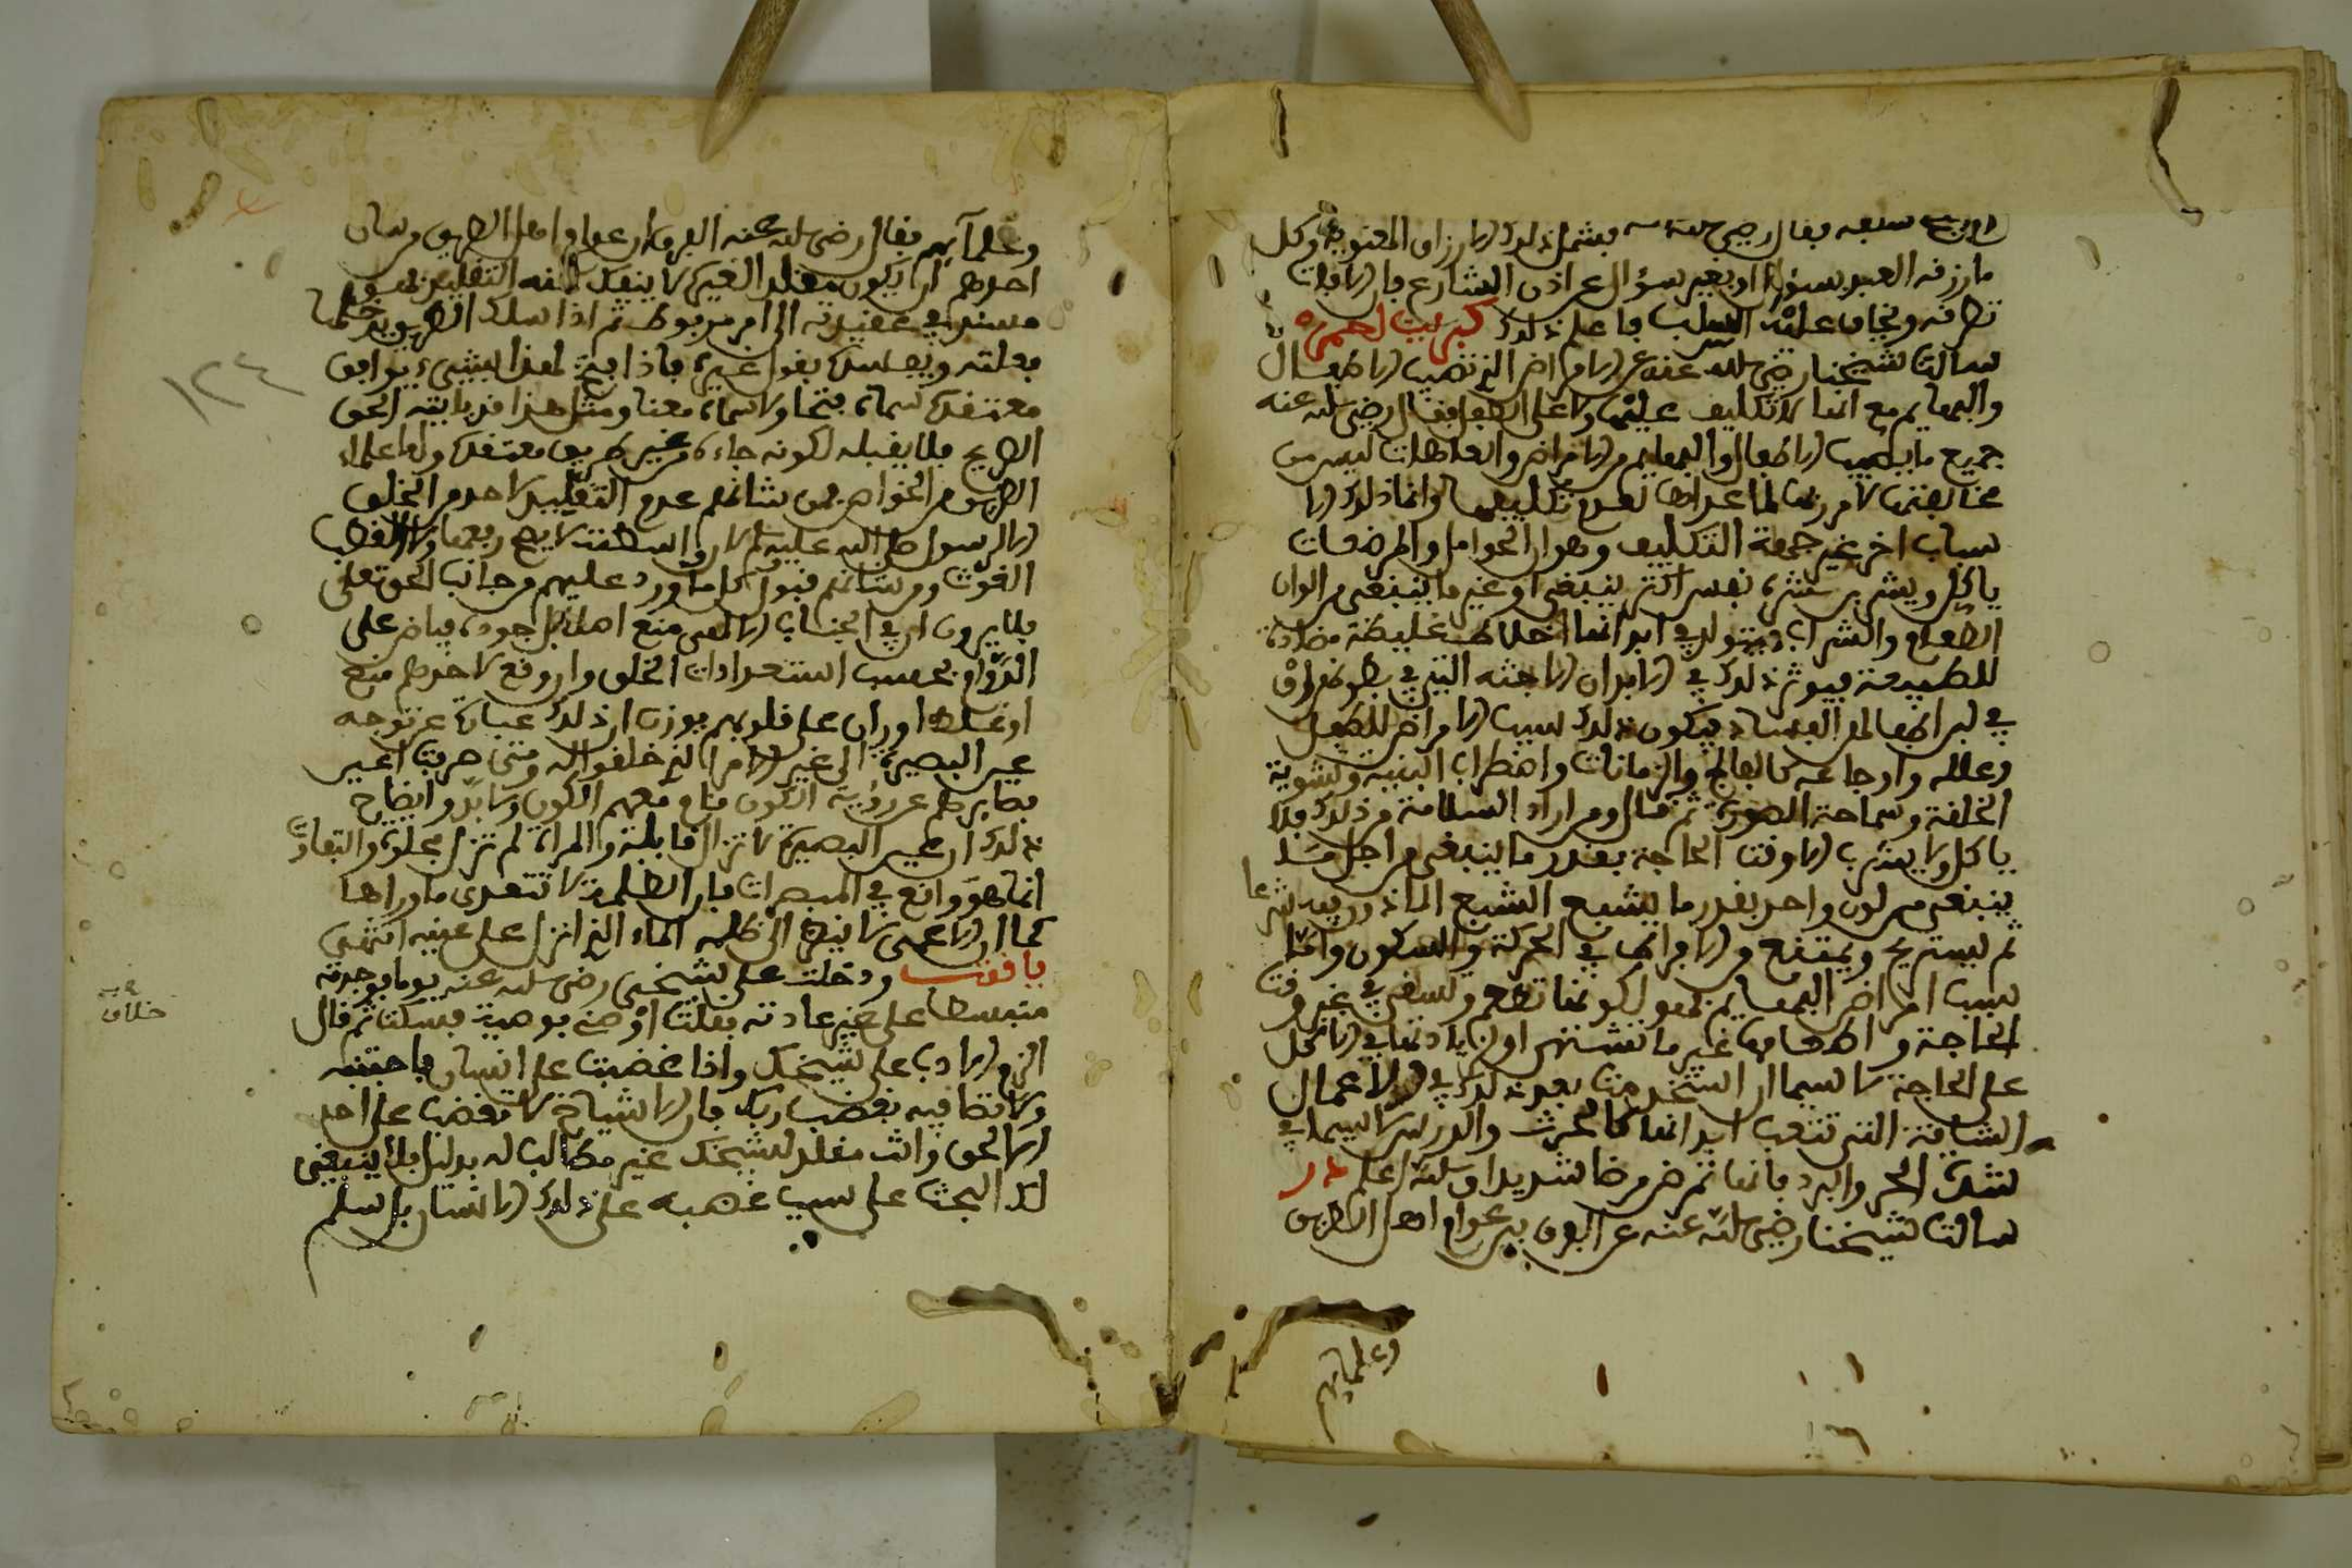 سبعه فقال رضي الله عنه يشمل ذلك الارزاق المعنوية وكل
ما رزقه العبد بسؤال او بغير سؤال عن اذن الشارع فان الآفات
تطرقه ويخاف عليه السلب فاعلم ذلك كبريت احمر
سالت شيخنا رضي الله عنه عن الامراض التي تصيب الاطفال
والبهايم مع انها لا تكليف عليها ولا على الطفل فقال رضي الله عنه
جميع ما يصيب الاطفال والبهايم من الامراض والعاهات ليس من
مخالفتها لامر ربها لما عدا لعدم تكليفها وانما ذلك لا
سباب اخر غير جهة التكليف وهو ان الحوامل والمرضعات
ياكل ويشرب بشره نفس اكثر ينبغي او غير ما ينبغي من الوان
الطعام والشراب فيتولد في ابدانها اخلاط غليظة مضادة
للطبيعة فيوثر ذلك في ابدان الاجنة التي في بطونهن او
في لبن اطفالهن الفساد فيكون ذلك سبب الامراض للطفل
وعلله واوجاعه كالفالج والزمانات واضطراب البنية وتشويه
الخلقة وسماجة الصورة ثم قال ومن اراد السلامة من ذلك فلا
ياكل ولا يشرب الا وقت الحاجة بقدر ما ينبغي من اجل ما
ينبغي من لون واحد بقدر ما يشبع الشبع الماذون فيه شرعا
ثم يستريح ويمتنع من الافراط في الحركة والسكون واما
سبب امراض البهايم فهو لكونها تطعم وتسقى في غير وقت
الحاجة واطعامها غير ما تشتهي او زيادتها في الاكل
على الحاجة لا سيما ان استخدمت بعد ذلك في الاعمال
الشاقة التي تتعب ابدانها كالحرث والدرس لا سيما في
شدة الحر والبرد فانها تمرض مرضا شديدا والله اعلم در
سالت شيخنا رضي الله عنه عن الفرق بين عوام اهل الطريق
وعلمايهم
وعلمآيهم فقال رضي الله عنه الفرق ان عوام اهل الطريق من شان
احدهم ان يكون مقلدا لغيره لا ينفك عنه التقليد فهو
مستند في عقيدته الى امر مربوط ثم اذا سلك الطريق يدخلها
بعلته ويتمسك بقول غيره فاذا فتح لهذا بشيء يوافق
معتقده سماه فتحا ولا سماه معنا ومثل هذا فربما يتيه الحق
الصريح فلا يقبله لكونه جاءه من غير طريق معتقده واما علماء
الطريق من الخواص فمن شانهم عدم التقليد لاحد من الخلق
الا الرسول صلى الله عليه وسلم لان واسطته لا يصح رفعها ولا القطب
الغوث ومن شانهم قبول كل ما ورد عليهم من جانب الحق تعلى
فلا يرون ان في الجناب الالهي منع اصلا بل جوده فياض على
الدوام بحسب استعدادات الخلق وان وقع لاحدهم منع
او غلط او ران على قلوبهم يوزن ان ذلك عبارة عن توجه
عين البصيرة الى غير الامر الذي خلقوا له ومتى صرفت اعين
بصايرهم عن روية الكون قام معهم الكون ولا بد وايضاح
ذلك ان عين البصيرة لا تزال قابلة والمراة لم تزل مجلوة والتفاوت
انما هو واقع في المبصرات فان الظلمة لا تتعدى ما وراها
كما ان الاعمى لا ينظر الى ظلمه الماء الذي انزل على عينيه انتهى
ياقوت ودخلت على شيخي رضي الله عنه يوما فوجدته
منبسطا على غير عادته فقلت اوصني بوصية فسكت ثم قال
الزم الادب على شيخك واذا غضب على انسان فاجتنبه
ولا تصافيه بغضب ربك فان الاشياخ لا تغضب على احد
الا لحق وانت مقلد لشيخك غير مطالب له بدليل فلا ينبغي
لك البحث على سبب غضبه على ذلك الانسان بل سلم
خلاف
١٢٤